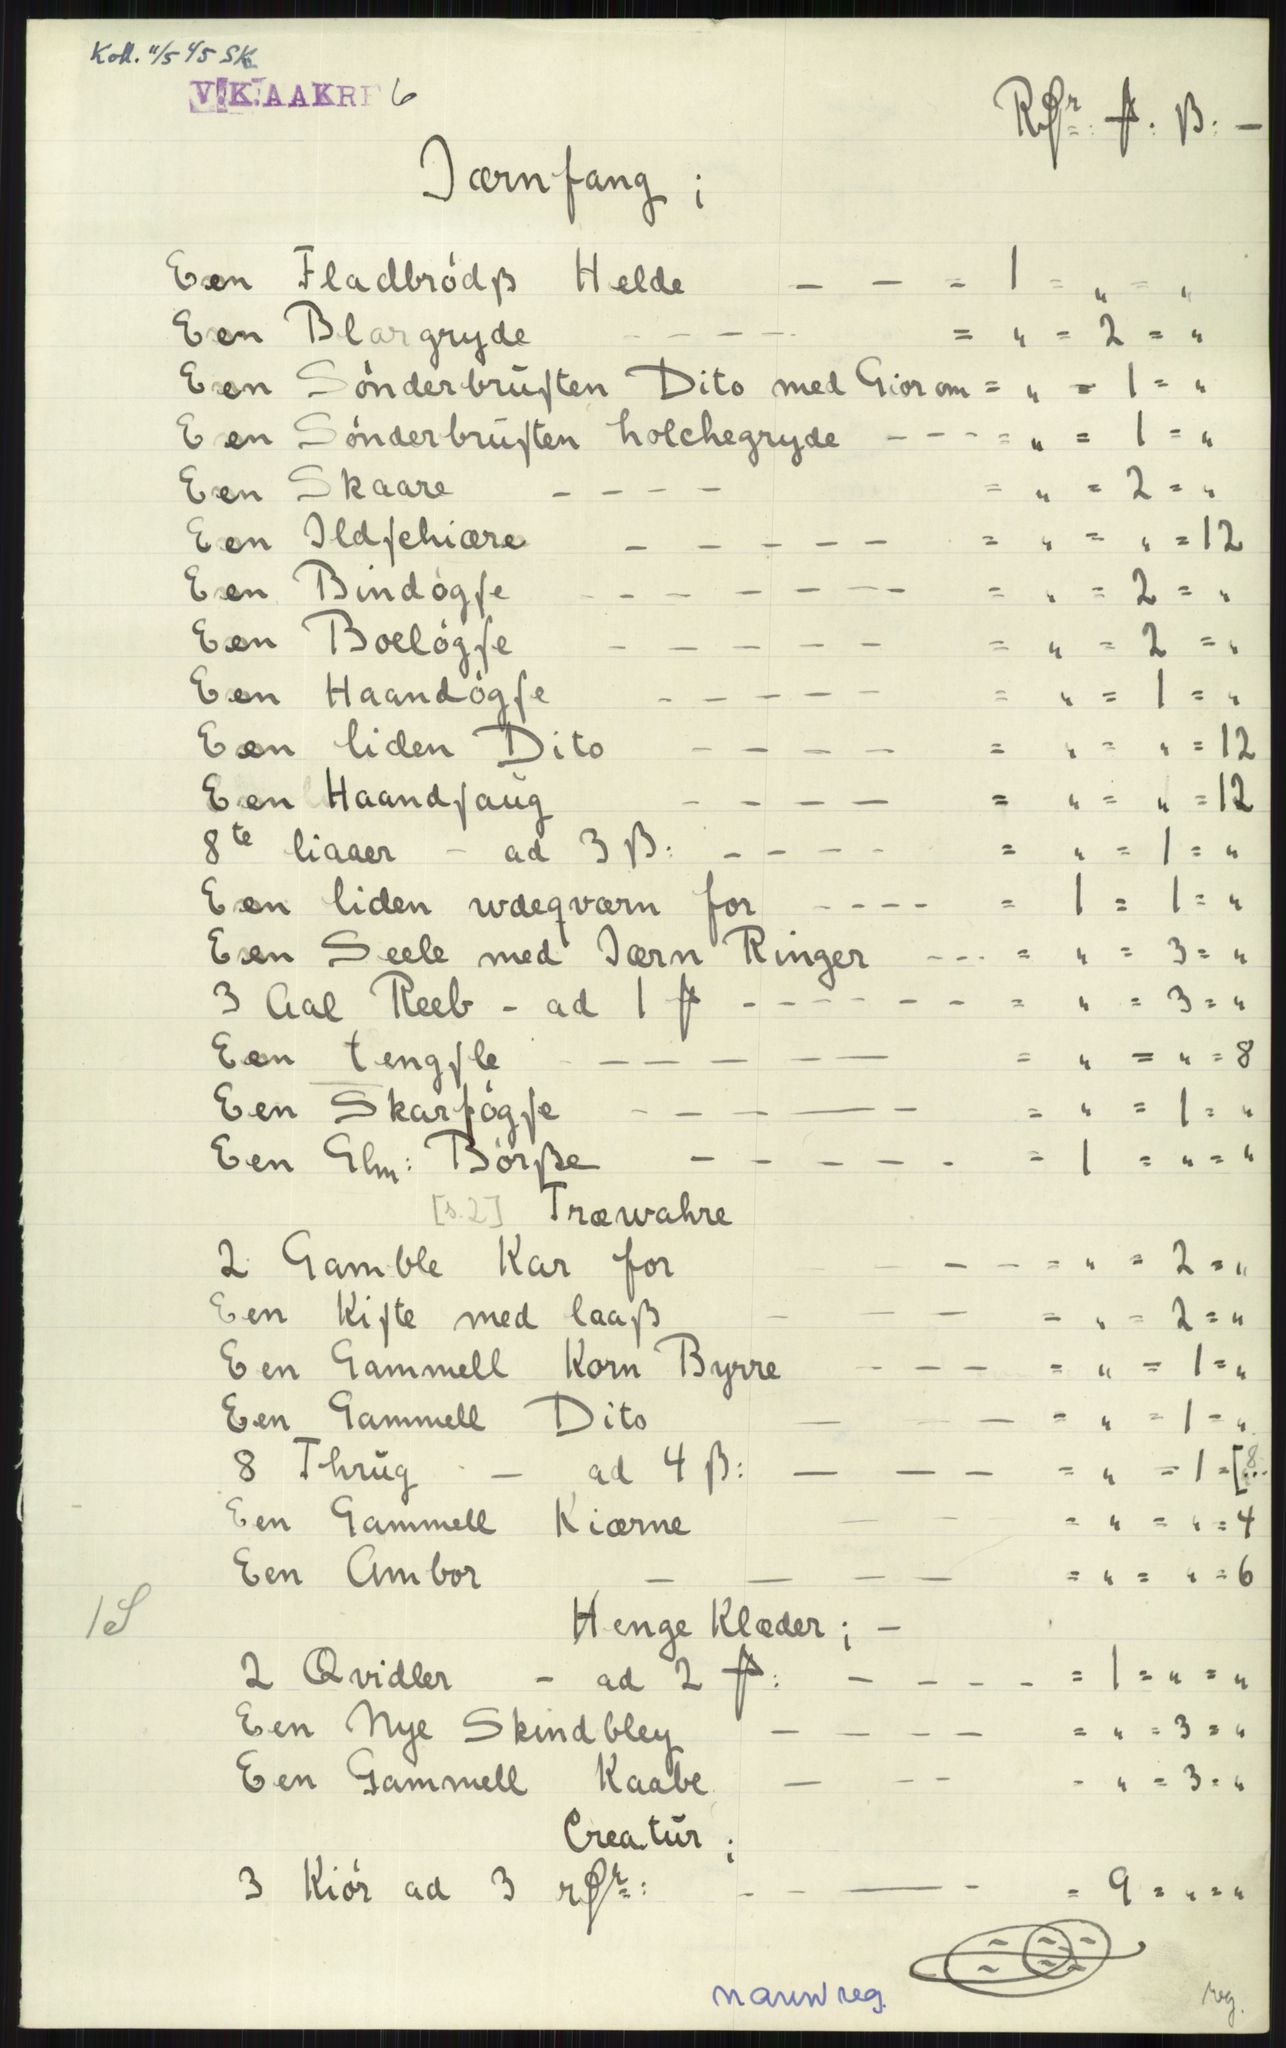 Koll. 11/5 45 SK
V.K. AAKRE 6
Rdr: ₰: β: —
Jærnfang ;
Een Fladbrödβ Helde — — = 1 = „ = „
Een Blargryde - - - - = „ = 2 = „
Een Sönderbrŭsten Dito med Giorom = „ = 1 = „
Een Sönderbrŭsten holchegryde - - - = „ = 1 = „
Een Skaare - - - - = „ = 2 = „
Een Ildschiære - - - - - = „ = „ = 12
Een Bindögse - - - - - - - = „ = 2 = „
Een Boelögse - - - - - = „ = 2 = „
Een Haandögse - - - - - = „ = 1 = „
Een liden Dito - - - - = „ = „ = 12
Een Haandsaŭg - - - - = „ = „ = 12
8te liaaer - ad 3 β: - - - - = „ = 1 = „
Een liden wdeqværn for - - - - = 1 = 1 = „
Een Seele med Jærn Ringer - - - = „ = 3 = „
3 Aal Reeb - ad 1 ₰ - - - - - - - = „ = 3 = „
Een tengsle - - - - - - = „ = „ = 8
Een Skarfögse - - - — - = „ = 1 = „
Een Glm: Börβe - - - - - - = 1 = „ = „
[s.2] Træwahre
2 Gamble Kar for - - - - = „ = 2 = „
Een Kiste med laaβ - - - - = „ = 2 = „
Een Gammell Korn Byrre - - - = „ = 1 = „
Een Gammell Dito — — — = „ = 1 = „
8 Thrŭg — ad 4 β: — — — = „ = 1 = [8...
Een Gammell Kiærne — — = „ = „ = 4
Een Ambor — — — — = „ = „ = 6
Henge Klæder ; —
2 Qvidler - ad 2 ₰: — - - - - = 1 = „ = „
Een Nye Skindbley - - - - = „ = 3 = „
Een Gammell Kaabe — - - - „ = 3 = „
Creatŭr ;
3 Kiör ad 3 rdr: - - — - = 9 = „ = „
navnreg.
reg.